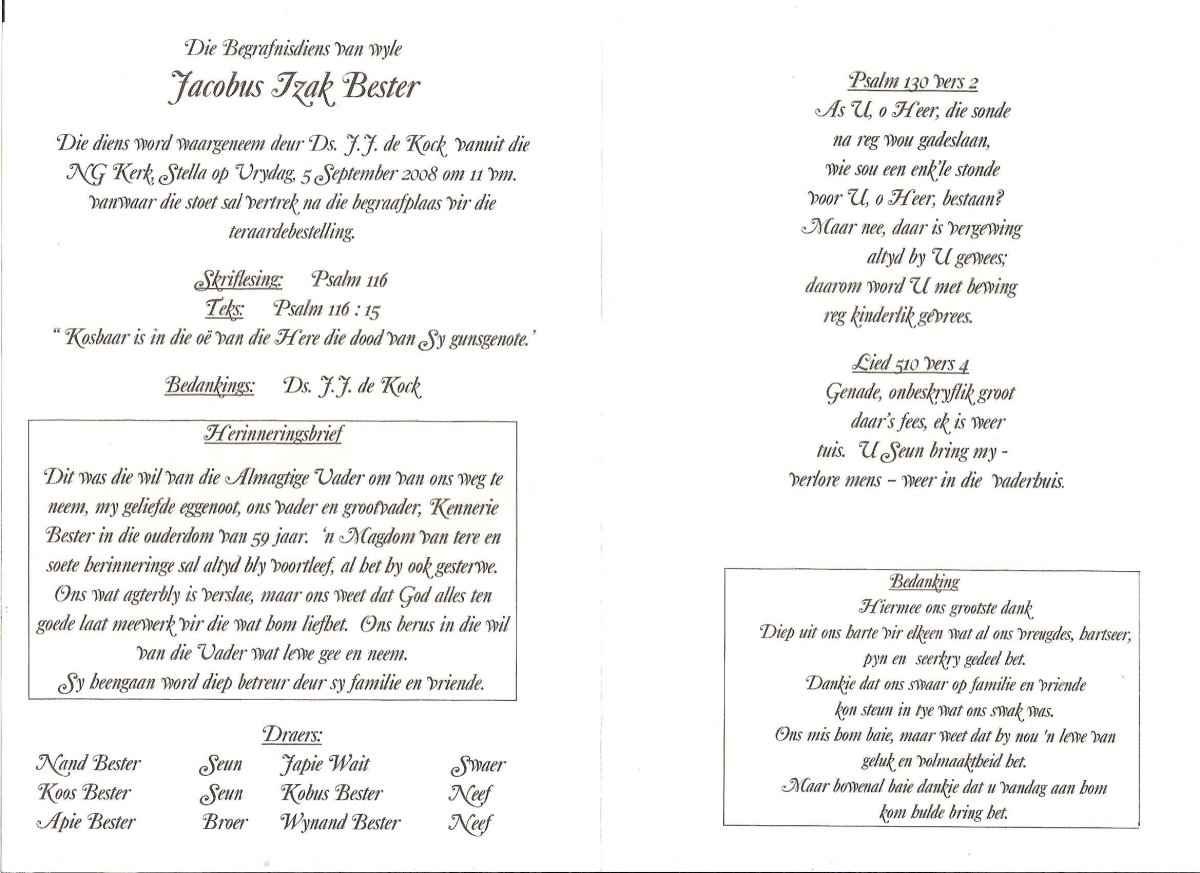 Die Begrafnisdiens van wyle
Jacobus Izak Bester
Die diens word waargeneem deur Ds. J.J. de Kock vanuit die
NG Kerk, Stella op Vrydag, 5 September 2008 om 11 vm.
vanwaar die stoet sal vertrek na die begraafplaas vir die
teraardebestelling.
Skriflesing: Psalm 116
Teks: Psalm 116 : 15
“ Kosbaar is in die oë van die Here die dood van Sy gunsgenote.’
Bedankings: Ds. J.J. de Kock
Herinneringsbrief
Dit was die wil van die Almagtige Vader om van ons weg te
neem, my geliefde eggenoot, ons vader en grootvader, Kennerie
Bester in die ouderdom van 59 jaar. ‘n Magdom van tere en
soete herinneringe sal altyd bly voortleef, al het hy ook gesterwe.
Ons wat agterbly is verslae, maar ons weet dat God alles ten
goede laat meewerk vir die wat hom liefhet. Ons berus in die wil
van die Vader wat lewe gee en neem.
Sy heengaan word diep betreur deur sy familie en vriende.
Draers:
Nand Bester Seun Japie Wait Swaer
Koos Bester Seun Kobus Bester Neef
Apie Bester Broer Wynand Bester Neef
Psalm 130 vers 2
As U, o Heer, die sonde
na reg wou gadeslaan,
wie sou een enk’le stonde
voor U, o Heer, bestaan?
Maar nee, daar is vergewing
altyd by U gewees;
daarom word U met bewing
reg kinderlik gevrees.
Lied 510 vers 4
Genade, onbeskryflik groot
daar’s fees, ek is weer
tuis. U Seun bring my -
verlore mens – weer in die vaderhuis.
Bedanking
Hiermee ons grootste dank
Diep uit ons harte vir elkeen wat al ons vreugdes, hartseer,
pyn en seerkry gedeel het.
Dankie dat ons swaar op familie en vriende
kon steun in tye wat ons swak was.
Ons mis hom baie, maar weet dat hy nou 'n lewe van
geluk en volmaaktheid het.
Maar bowenal baie dankie dat u vandag aan hom
kom hulde bring het.